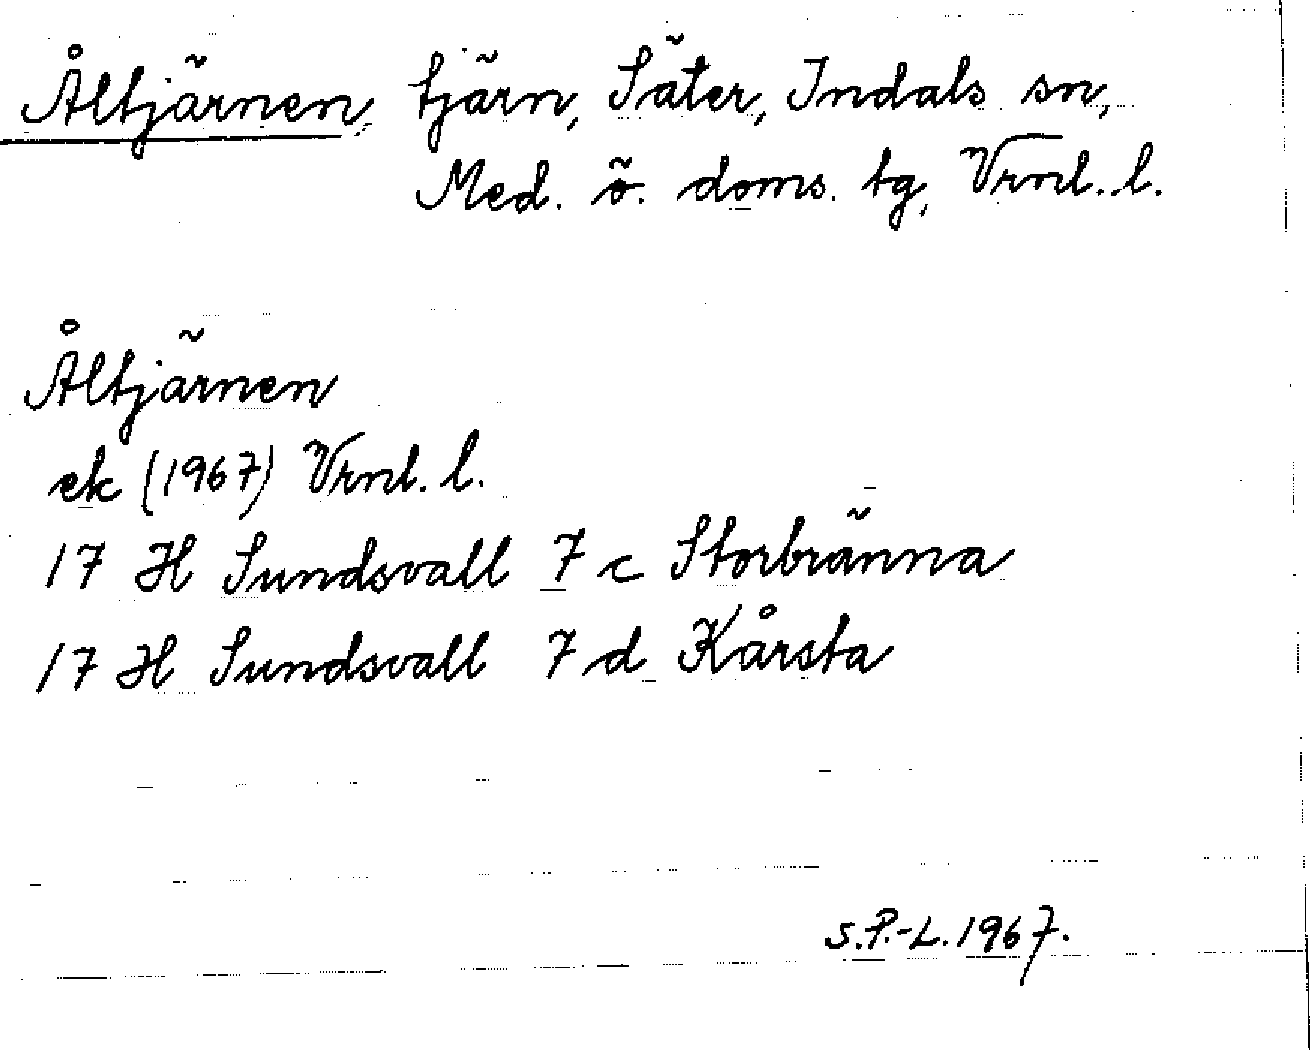 Åltjärnen, tjärn, Säter, Indals sn,
Med. ö. doms. tg, Vrnl. l.
Åltjärnen
ek (1967) Vrnl. l.
17 H Sundsvall 7 c Storbränna
17 H Sundsvall 7 d Kårsta
S.P.-L. 1967.